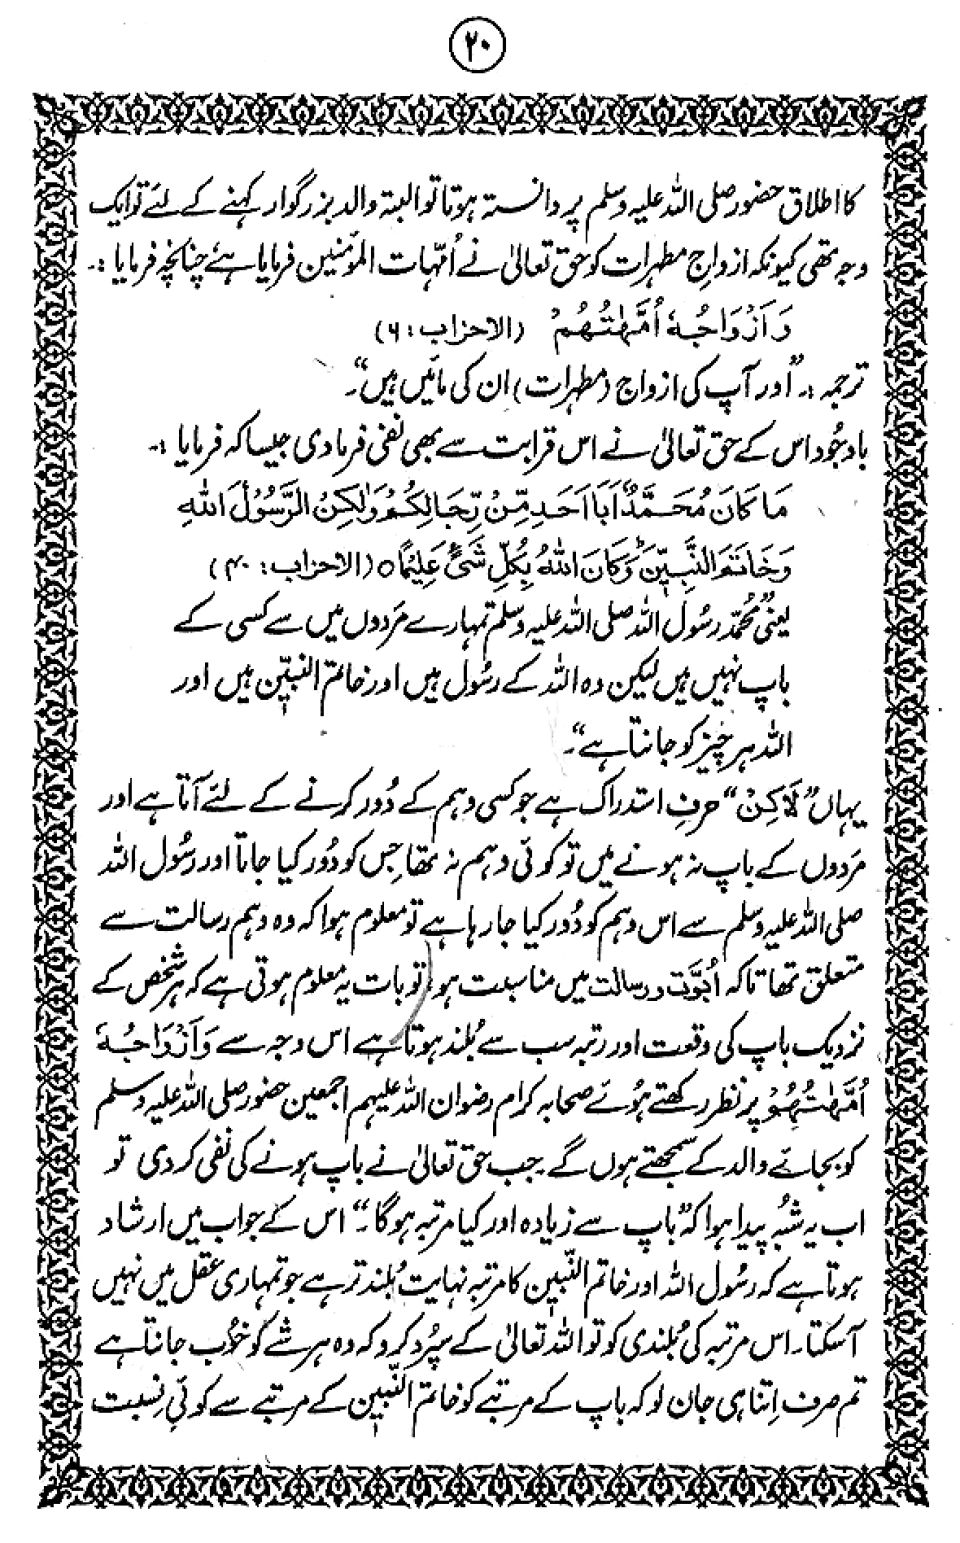 ۲۰
کا اطلاق حضور صلی اللہ علیہ وسلم پر دانستہ ہوتا تو البتہ والد بزرگوار کہنے کے لئے تو ایک
وجہ تھی کیونکہ ازواجِ مطہرات کو حق تعالیٰ نے اُمّہات المؤمنین فرمایا ہے چنانچہ فرمایا :۔
وَاَزْوَاجُهٗ اُمَّهٰتُهُمْ (الاحزاب : ۶)
ترجمہ :۔ ”اور آپ کی ازواج (مطہرات) ان کی مائیں ہیں“۔
باوجُود اس کے حق تعالیٰ نے اس قرابت سے بھی نفی فرمادی جیسا کہ فرمایا :۔
مَا كَانَ مُحَمَّدٌ اَبَا اَحَدٍ مِّنْ رِّجَالِكُمْ وَلٰكِنْ الرَّسُوْلَ اللهِ
وَخَاتَمَ النَّبِيّٖنَ ؕ وَكَانَ اللهُ بِكُلِّ شَيْءٍ عَلِيْمًا ۝ (الاحزاب : ۴۰)
یعنی ”محمّد رسُول اللہ صلی اللہ علیہ وسلم تمہارے مَردوں میں سے کسی کے
باپ نہیں ہیں لیکن وہ اللہ کے رسُول ہیں اور خاتم النبیّین ہیں اور
اللہ ہر چیز کو جانتا ہے“۔
یہاں ”لَاکِنْ“ حرفِ استدراک ہے جو کسی وہم کے دُور کرنے کے لئے آتا ہے اور
مَردوں کے باپ نہ ہونے میں تو کوئی وہم نہ تھا جس کو دُور کیا جاتا اور رسُول اللہ
صلی اللہ علیہ وسلم سے اس وہم کو دُور کیا جا رہا ہے تو معلوم ہوا کہ وہ وہم رسالت سے
متعلق تھا تاکہ اُبوّت و رسالت میں مناسبت ہو، تو بات یہ معلوم ہوتی ہے کہ ہر شخص کے
نزدیک باپ کی وقعت اور رتبہ سب سے بُلند ہوتا ہے اس وجہ سے وَاَزْوَاجُهٗ
اُمَّهٰتُهُمْ پر نظر رکھتے ہُوئے صحابہ کرام رضوان اللہ علیہم اجمعین حضور صلی اللہ علیہ وسلم
کو بجائے والد کے سمجھتے ہوں گے جب حق تعالیٰ نے باپ ہونے کی نفی کردی تو
اب یہ شُبہ پیدا ہوا کہ ”باپ سے زیادہ اور کیا مرتبہ ہوگا۔“ اس کے جواب میں ارشاد
ہوتا ہے کہ رسُول اللہ اور خاتم النبیّین کا مرتبہ نہایت بُلند تر ہے جو تمہاری عقل میں نہیں
آسکتا۔ اس مرتبہ کی بُلندی کو تو اللہ تعالیٰ کے سپُرد کرو کہ وہ ہر شے کو خُوب جانتا ہے
تم صرف اِتنا ہی جان لو کہ باپ کے مرتبے کو خاتم النبیّین کے مرتبے سے کوئی نِسبت